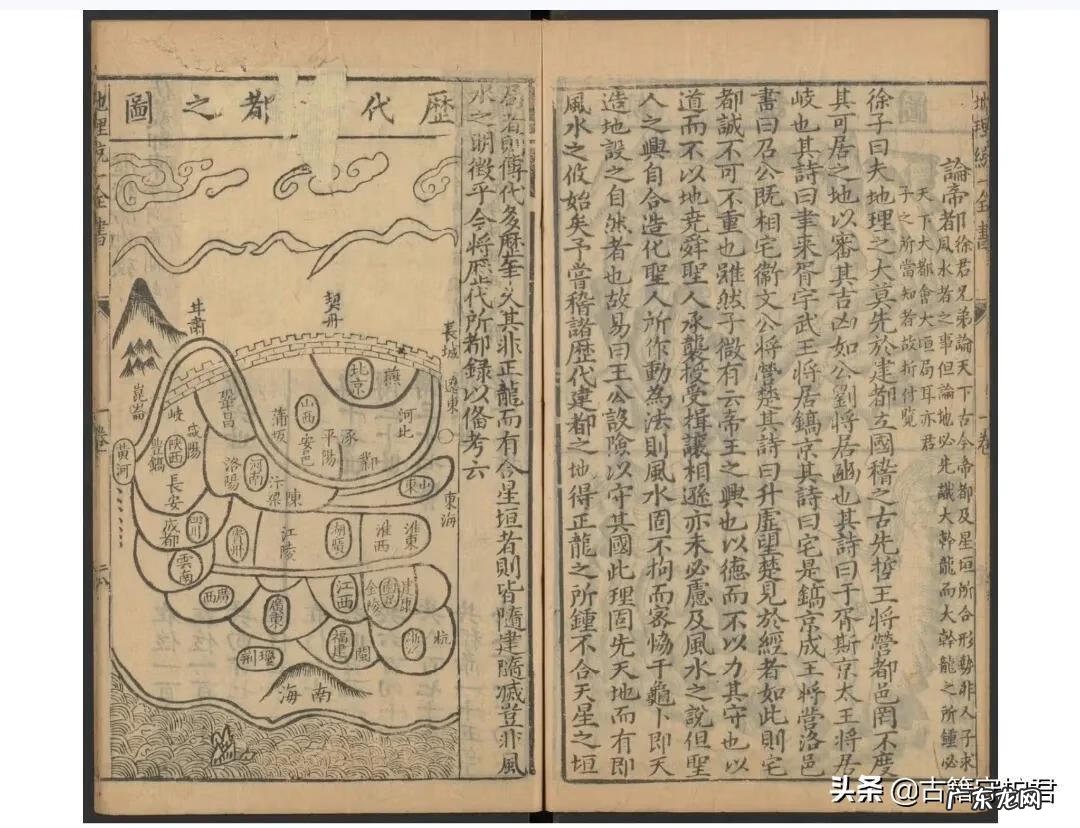 論帝都
徐君兄弟論天下古今帝都及星垣所合形勢非人子求
風水者之事但論地必先識大幹龍而大幹龍之所鍾必
天下大都會大垣局耳亦君
子之所當知者故析付覽
徐子曰夫地理之大莫先於建都立國稽之古先哲王將營都邑罔不度
其可居之地以審其吉凶如公劉將居豳也其詩曰于胥斯京太王將居
岐也其詩曰聿來胥宇武王將居鎬京其詩曰宅是鎬京成王將營洛邑
書曰召公既相宅衞文公將營楚其詩曰升虛望楚見於經者如此則宅
都誠不可不重也雖然子微有云帝王之興也以德而不以力其守也以
道而不以地堯舜聖人承襲授受揖讓相遜亦未必慮及風水之說但聖
人之興自合造化聖人所作動為法則風水固不拘而家恊于龜卜即天
造地設之自然者也故易曰王公設險以守其國此理固先天地而有即
風水之攸始矣予嘗稽諸歷代建都之地得正龍之所鍾不合天星之垣
局者則傳代多歷年久其非正龍而有合星垣者則皆隨建隨滅豈非風
水之明徵乎今將歷代所都錄以俻考云
歷代
都之圖
契丹
長城
遼東
甘肅
崑崙
黃河
北京
燕
河北
山西
安邑
平陽
涿
鄴
蒲坂
鞏昌
岐
咸陽
陝西
豐鎬
長安
洛陽
河南
汴梁
陳
山東
東海
成都
四川
江陵
湖廣
淮西
淮東
雲南
廣西
廣東
江西
金陵
建康
福建
閩
浙
杭
南海
地理統一全書
一卷
頭条 @古籍守护君
广东龙网